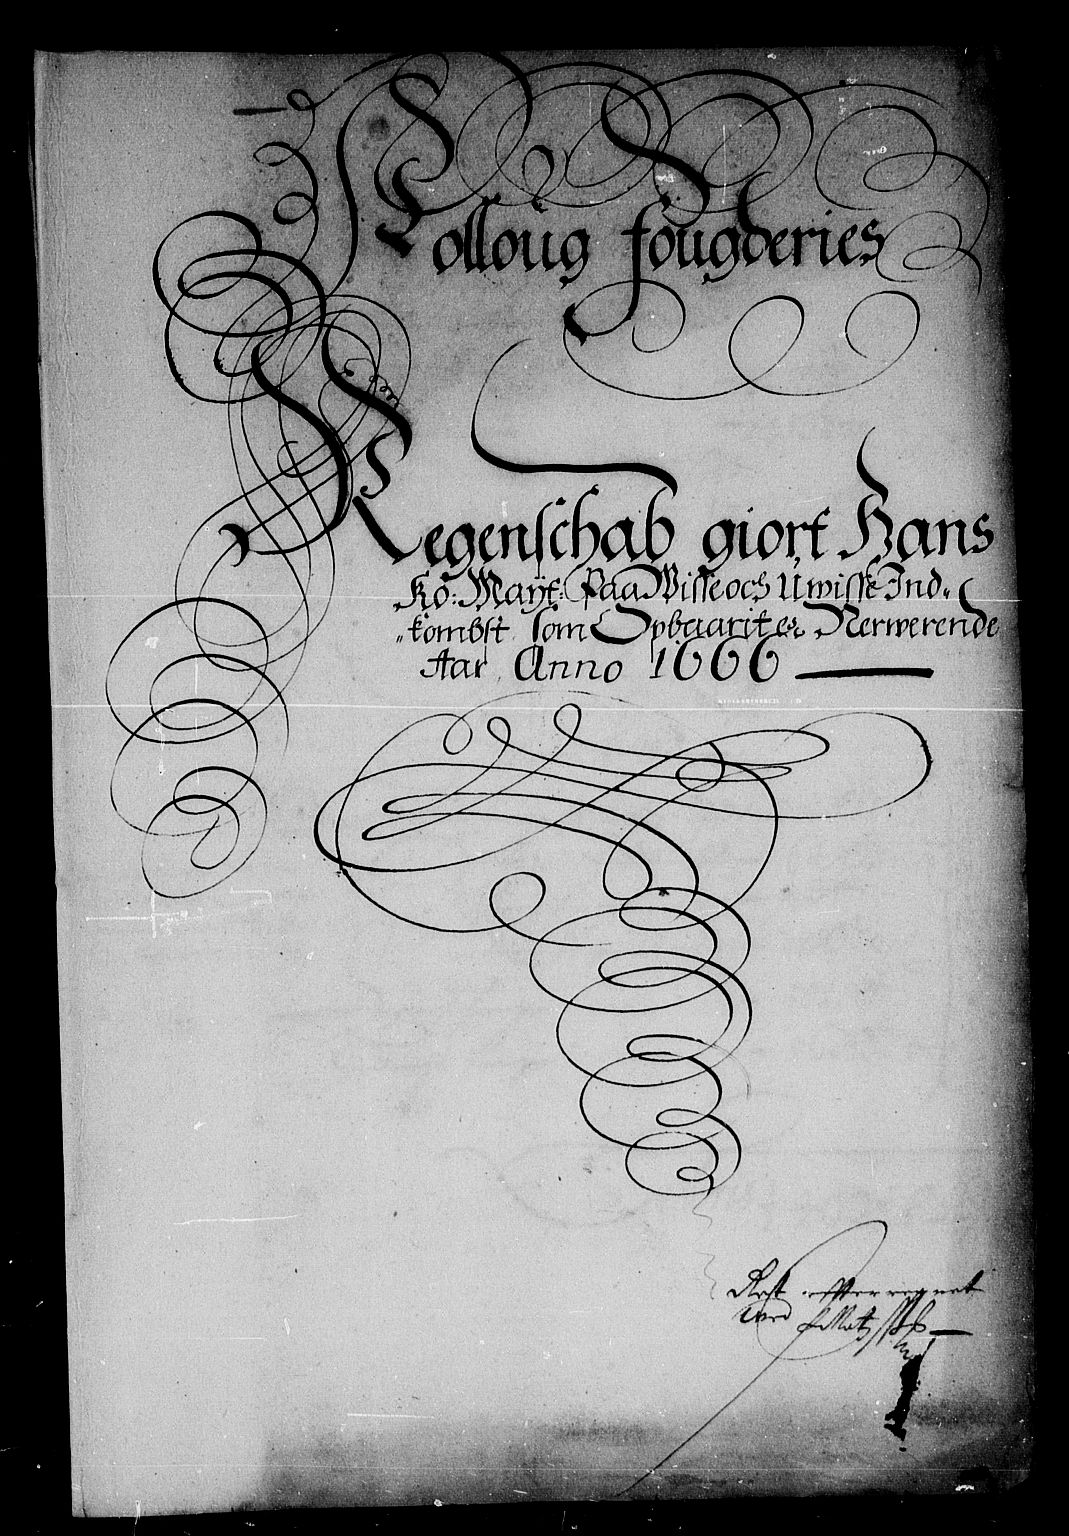 Folloug fougderies
Regenschab giort Hans
Ko: Maytt: Paa Wisse och Uwisse Ind„
„kombst som Opbaarit er Nerwerende
Aar Anno 1666
Rest effterregnet
wed